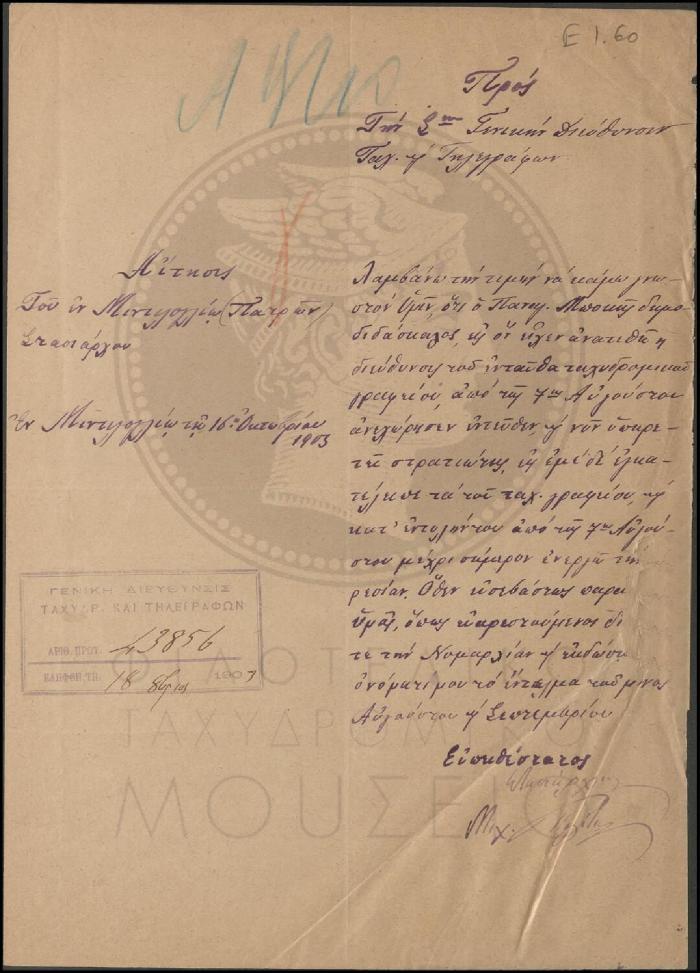 Ε 1.60
Πρός
Τὴν Σ^ην Γενικὴν Διεύθυνσιν
Ταχ. κ' Τηλεγράφων
Αἴτησις
Τοῦ ἐν Μιντιλογλίῳ (Πατρῶν)
Σταθάρχου
Ἐν Μιντιλογλίῳ τῇ 16ῃ Ὀκτωβρίου
1903
Λαμβάνω τὴν τιμὴν νὰ κάμω γνω
στὸν Ὑμῖν, ὅτι ὁ Παναγ. δημο
διδάσκαλος, εἰς ὃν εἶχεν ἀνατεθῆ ἡ
διεύθυνσις τοῦ ἐνταῦθα ταχυδρομικοῦ
γραφείου, ἀπὸ τῆς 7ης Αὐγούστου
ἀνεχώρησεν ἐντεῦθεν κ' νῦν ὑπηρε
τεῖ στρατιώτης, εἰς ἐμὲ δὲ ἐγκα
τέλιπε τὰ τοῦ ταχ. γραφείου, κ'
κατ' ἐντολήν του ἀπὸ τῆς 7ης Αὐγού
στου μέχρι σήμερον ἐνεργῶ τὴν
ρεσίαν. Ὅθεν εὐσεβάστως παρα
Ὑμᾶς, ὅπως εὐαρεστούμενος δι
τε τὴν Νομαρχίαν κ' ἐκδώσῃ
ὀνόματί μου τὸ ἔνταλμα τοῦ μηνὸς
Αὐγούστου κ' Σεπτεμβρίου
Εὐπειθέστατος
ΓΕΝΙΚΗ ΔΙΕΥΘΥΝΣΙΣ
ΤΑΧΥΔΡ. ΚΑΙ ΤΗΛΕΓΡΑΦΩΝ
ΑΡΙΘ. ΠΡΩΤ. 43856
ΕΛΗΦΘΗ ΤΗ 18 8βρίου 1903
ΦΙΛΟΤΕΛΙΚΟ
ΤΑΧΥΔΡΟΜΙΚΟ
ΜΟΥΣΕΙΟ